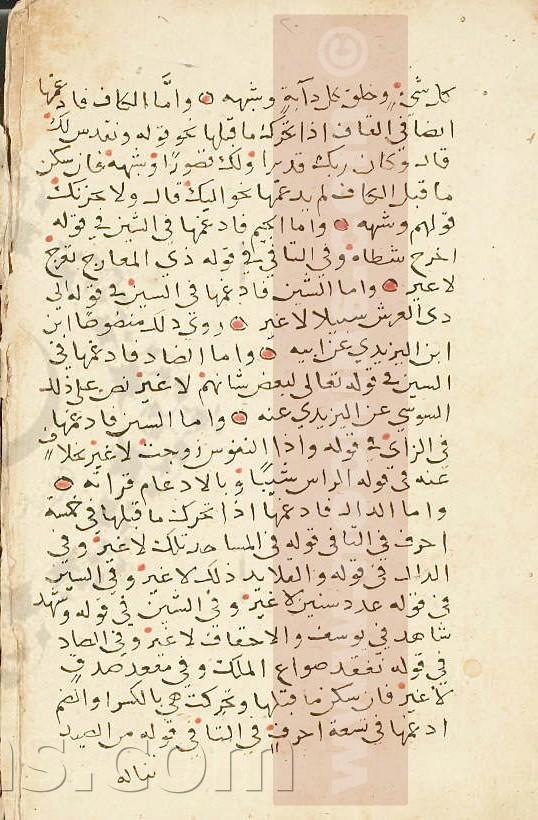 كل شيء وخلق كل دآبة وشبهه وامَّا الكاف فادغمها
ايضا في القاف اذا تحرك ما قبلها نحو قوله ونقدس لك
قال وكان ربك قديرا ولك قصورًا وشبهه فان سكن
ما قبل الكاف لم يدغمها نحو اليك قال ولا يحزنك
قولهم وشبهه واما الجيم فادغمها في الشين في قوله
اخرج شطاه وفي التا في قوله ذي المعارج تعرج
لا غير واما الشين فادغمها في السين في قوله الى
ذي العرش سبيلا لا غير روى ذلك منصوصًا ابن
ابن اليزيدي عن ابيه واما الضاد فادغمها في
الشين في قوله تعالى لبعض شانهم لا غير نص على ذلك
السوسي عن اليزيدي عنه واما السين فادغمها
في الزاي في قوله واذا النفوس زوجت لا غير بخلاف
عنه في قوله الراس شيبًا وبالادغام قراته
واما الدال فادغمها اذا تحرك ما قبلها في خمسة
احرف في التا في قوله في المساجد تلك لا غير وفي
الذال في قوله والقلايد ذلك لا غير وفي السين
في قوله عدد سنين لا غير وفي الشين في قوله وشهد
شاهد في يوسف والاحقاف لا غير وفي الصاد
في قوله نفقد صواع الملك وفي مقعد صدق
لا غير فان سكن ما قبلها وتحركت هي بالكسر او الضم
ادغمها في تسعة احرف في التا في قوله من الصيد
تناله
ns.com